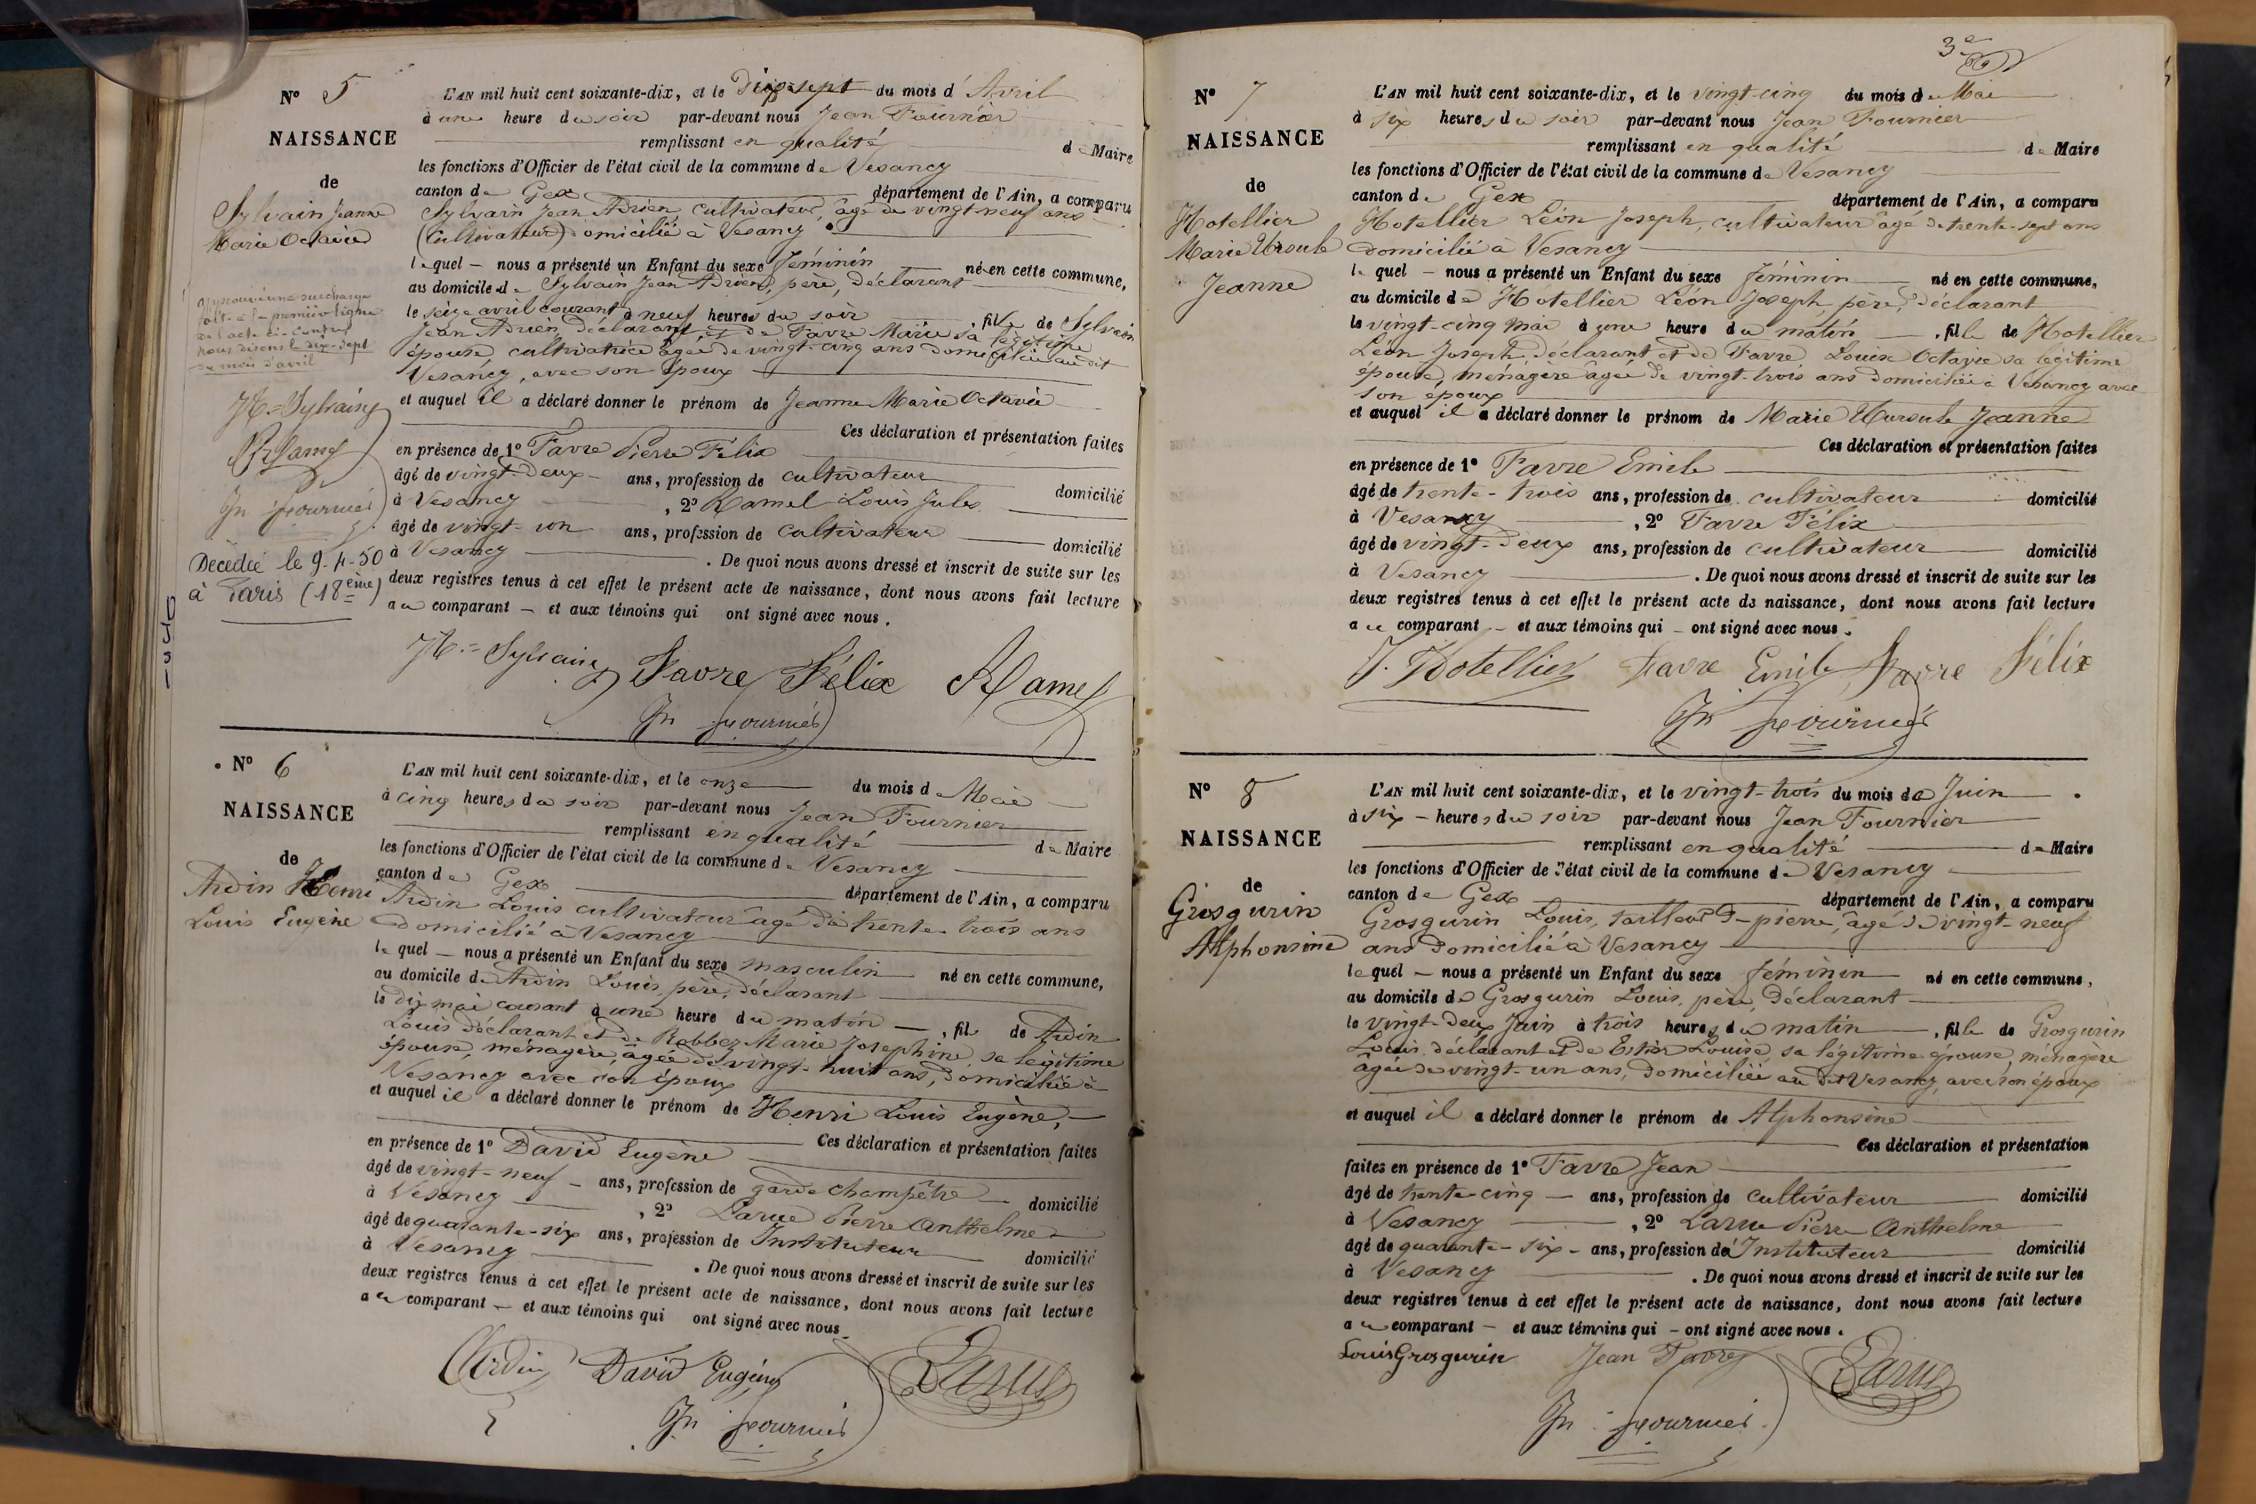 N° 5
NAISSANCE
de
Sylvain Jeanne
Marie Octavie
approuvé une surcharge
faite à la première ligne
de l'acte ci-contre
nous disons le dix-sept
du mois d'avril
Jn Fournier
Décédée le 9-4-50
à Paris (18ème)
L'AN mil huit cent soixante-dix, et le dix-sept du mois d'Avril
à une heure du soir par-devant nous Jean Fournier
remplissant en qualité de Maire
les fonctions d'Officier de l'état civil de la commune de Vesancy
canton de Gex département de l'Ain, a comparu
Sylvain Jean Adrien, cultivateur, âgé de vingt-neuf ans
(Cultivateur) domicilié à Vesancy
lequel nous a présenté un Enfant du sexe féminin né en cette commune,
au domicile de Sylvain Jean Adrien, père, déclarant
le seize avril courant à neuf heures du soir , fille de Sylvain
Jean Adrien, déclarant et de Favre Marie sa légitime
épouse, cultivatrice âgée de vingt-cinq ans domiciliée au dit
Vesancy, avec son époux
et auquel il a déclaré donner le prénom de Jeanne Marie Octavie
Ces déclaration et présentation faites
en présence de 1° Favre Pierre Félix
âgé de vingt-deux ans, profession de cultivateur domicilié
à Vesancy , 2° Ramel Louis Jules
âgé de vingt-un ans, profession de cultivateur domicilié
à Vesancy . De quoi nous avons dressé et inscrit de suite sur les
deux registres tenus à cet effet le présent acte de naissance, dont nous avons fait lecture
au comparant – et aux témoins qui ont signé avec nous.
Sylvain Favre Félix Ramel
Jn Fournier
N° 6
NAISSANCE
de
Ardin Henri
Louis Eugène
L'AN mil huit cent soixante-dix, et le onze du mois de Mai
à cinq heures du soir par-devant nous Jean Fournier
remplissant en qualité de Maire
les fonctions d'Officier de l'état civil de la commune de Vesancy
canton de Gex département de l'Ain, a comparu
Ardin Louis cultivateur âgé de trente-trois ans
domicilié à Vesancy
lequel – nous a présenté un Enfant du sexe masculin né en cette commune,
au domicile de Ardin Louis, père, déclarant
le dix mai courant à une heure du matin – , fils de Ardin
Louis déclarant et de Robbez Marie Josephine, sa légitime
épouse, ménagère, âgée de vingt-huit ans, domiciliée à
Vesancy avec son époux
et auquel il a déclaré donner le prénom de Henri Louis Eugène,
Ces déclaration et présentation faites
en présence de 1° David Eugène
âgé de vingt-neuf – ans, profession de garde champêtre domicilié
à Vesancy , 2° Larue Pierre Anthelme
âgé de quarante-six ans, profession de Instituteur domicilié
à Vesancy . De quoi nous avons dressé et inscrit de suite sur les
deux registres tenus à cet effet le présent acte de naissance, dont nous avons fait lecture
au comparant – et aux témoins qui ont signé avec nous
Ardin David Eugène Larue
Jn Fournier
3e
N° 7
NAISSANCE
de
Hotellier
Marie Ursule
Jeanne
L'AN mil huit cent soixante-dix, et le vingt-cinq du mois de Mai
à six heures du soir par-devant nous Jean Fournier
remplissant en qualité de Maire
les fonctions d'Officier de l'état civil de la commune de Vesancy
canton de Gex département de l'Ain, a comparu
Hotellier Léon Joseph, cultivateur âgé de trente-sept ans
domicilié à Vesancy
lequel – nous a présenté un Enfant du sexe féminin né en cette commune,
au domicile de Hotellier Léon Joseph, père, déclarant
le vingt-cinq mai à une heure du matin , fille de Hotellier
Léon Joseph, déclarant et de Favre Louise Octavie sa légitime
épouse, ménagère âgée de vingt-trois ans domiciliée à Vesancy avec
son époux
et auquel il a déclaré donner le prénom de Marie Ursule Jeanne
Ces déclaration et présentation faites
en présence de 1° Favre Emile
âgé de trente-trois ans, profession de cultivateur domicilié
à Vesancy , 2° Favre Félix
âgé de vingt-deux ans, profession de cultivateur domicilié
à Vesancy . De quoi nous avons dressé et inscrit de suite sur les
deux registres tenus à cet effet le présent acte de naissance, dont nous avons fait lecture
au comparant – et aux témoins qui – ont signé avec nous.
J. Hotellier Favre Emile Favre Félix
Jn Fournier
N° 8
NAISSANCE
de
Grosgurin
Alphonsine
L'AN mil huit cent soixante-dix, et le vingt-trois du mois de Juin
à six – heures du soir par-devant nous Jean Fournier
remplissant en qualité de Maire
les fonctions d'Officier de l'état civil de la commune de Vesancy
canton de Gex département de l'Ain, a comparu
Grosgurin Louis, tailleur d-pierre, âgé de vingt-neuf
ans domicilié à Vesancy
lequel – nous a présenté un Enfant du sexe féminin né en cette commune,
au domicile de Grosgurin Louis, père, déclarant
le vingt-deux Juin à trois heures du matin , fille de Grosgurin
Louis déclarant et de Estier Louise, sa légitime épouse, ménagère
âgée de vingt-un ans, domiciliée au dit Vesancy, avec son époux
et auquel il a déclaré donner le prénom de Alphonsine
Ces déclaration et présentation
faites en présence de 1° Favre Jean
âgé de trente-cinq – ans, profession de cultivateur domicilié
à Vesancy , 2° Larue Pierre Anthelme
âgé de quarante-six – ans, profession de Instituteur domicilié
à Vesancy . De quoi nous avons dressé et inscrit de suite sur les
deux registres tenus à cet effet le présent acte de naissance, dont nous avons fait lecture
au comparant – et aux témoins qui – ont signé avec nous.
Louis Grosgurin Jean Favre Larue
Jn Fournier